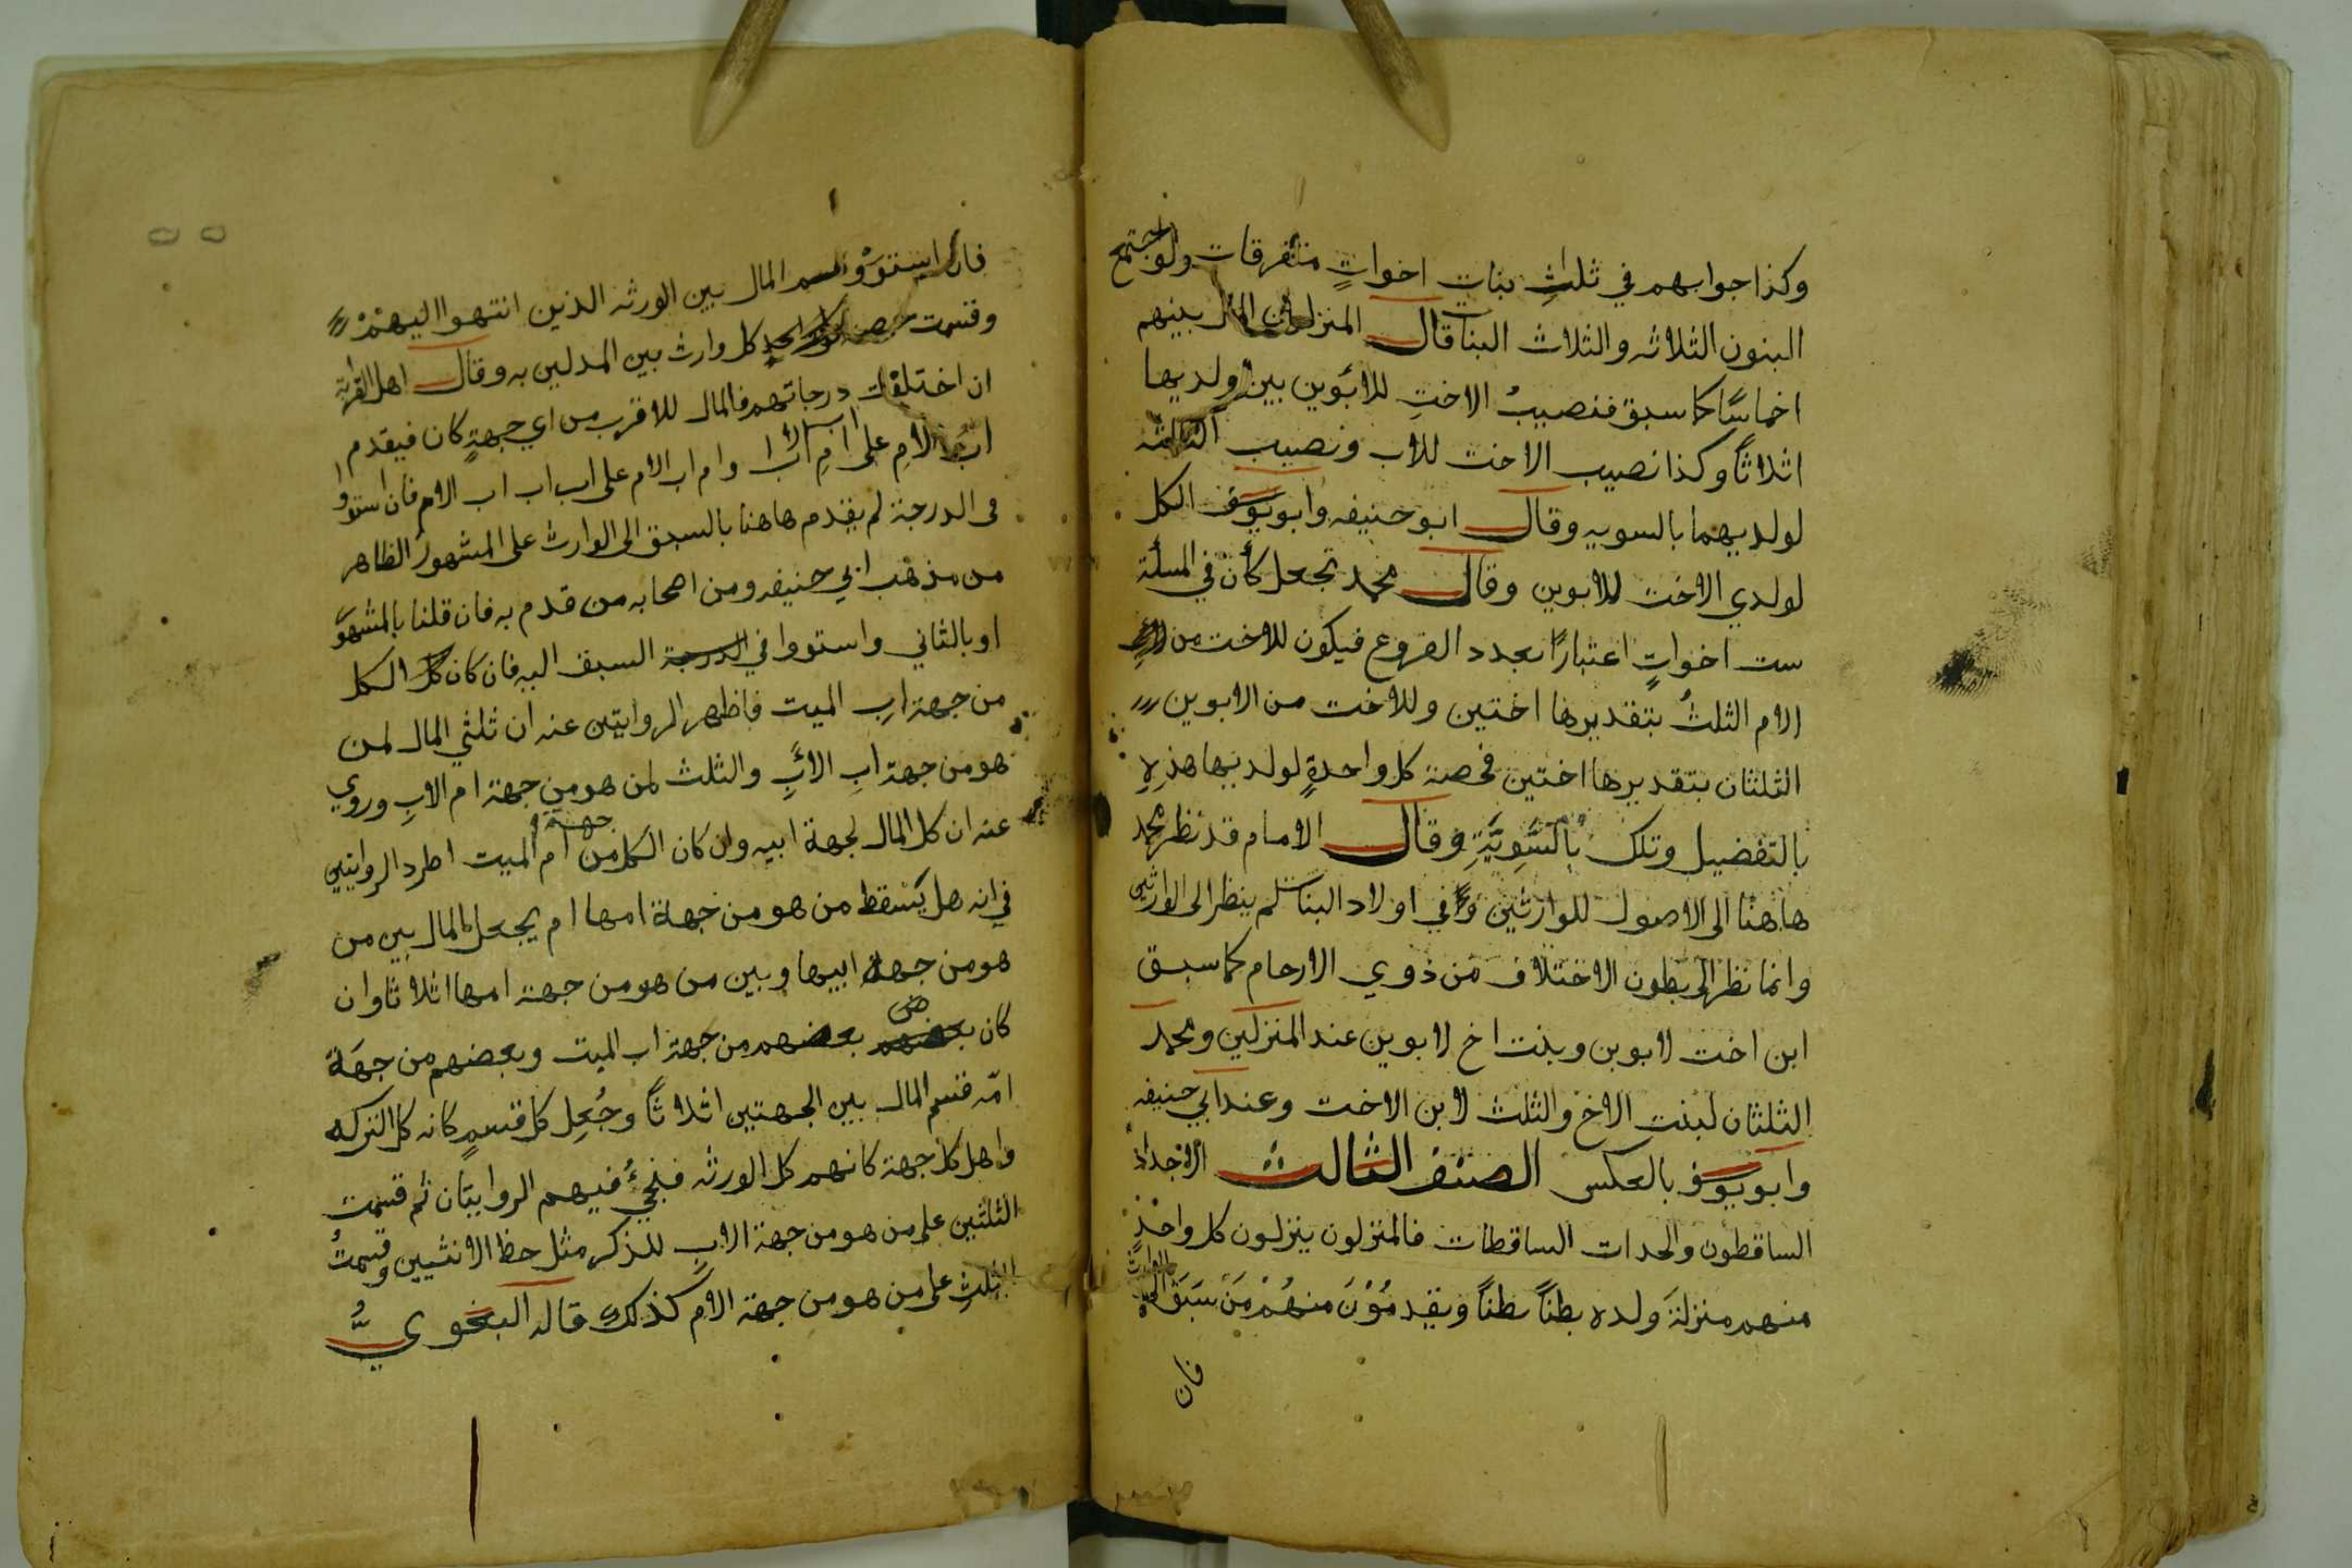 وكذا جوابهم في ثلاث بنات اخواتٍ متفرقات ولو اجتمع
البنون الثلاثه والثلاث البنات قال المنزلون المال بينهم
اخماسًا كما سبق فنصيبُ الاختِ للابوين بين ولديها
اثلاثاً وكذا نصيب الاخت للاب ونصيب الثالثه
لولديهما بالسويه وقال ابو حنيفه وابو يوسف الكل
لولدي الاخت للابوين وقال محمد تجعل كأن في المسلة
ست اخواتٍ اعتبارًا بعدد الفروع فيكون للاخت من
الام الثلثُ بتقديرها اختين وللاخت من الابوين
الثلثان بتقديرها اختين فحصة كل واحدةٍ لولديها هذِه
بالتفضيل وتلك بالسَّوِيَّةِ وقال الامام قد نظر محمد
هاهنا الى الاصول للوارثين وفي اولاد البنات لم ينظر الى الوارثين
وانما نظر الى بطون الاختلاف من ذوي الارحام كما سبق
ابن اخت لابوين وبنت اخ لابوين عند المنزلين ومحمد
الثلثان لبنت الاخ والثلث لابن الاخت وعند ابي حنيفه
وابو يوسف بالعكس الصنف الثالث الاجداد
الساقطون والجدات الساقطات فالمنزلون ينزلون كل واحدٍ
منهم منزلةَ ولده بطناً بطناً ويقدمُوْنَ منهُمْ مَنْ سَبَقَ الى الوارث
فان
فان استوَوْا قسم المال بين الورثه الذين انتهوا اليهِمْ
وقسمت حصة كل وارث بين المدلين به وقال اهل القرابة
ان اختلفت درجاتهم فالمال للاقرب من اي جهةٍ كان فيقدم
ابُ الامِ على ام اب الاب وام اب الام على اب اب اب الام فان استووا
في الدرجة لم يقدم هاهنا بالسبق الى الوارث على المشهور الظاهر
من مذهب ابي حنيفه ومن اصحابه من قدم به فان قلنا بالمشهور
او بالثاني واستووا في السبق اليه فان كان الكل
من جهة ابِ الميت فاظهر الروايتين عنه ان ثلثي المال لمن
هو من جهة ابِ الابِ والثلث لمن هو من جهة ام الابِ وروي
عنه ان كل المال لجهة ابيه وان كان الكل من جهة ام الميت اطرد الروايتين
في انه هل يَسْقط من هو من جهة امها ام يجعل المال بين من
هو من جهة ابيها وبين من هو من جهة امها اثلاثا وان
كان بعضهم من جهة اب الميت وبعضهم من جهَة
امّه قسم المال بين الجهتين اثلاثاً وجُعِل كل قسمٍ كانه كل التركه
واهل كل جهة كانهم كل الورثه فيجيُ فيهم الروايتان ثم قسمت
الثلثين على من هو من جهة الابِ للذكر مثل حظ الانثيين وقسمتُ
الثلثِ على من هو من جهة الام كذلك قاله البغويُّ